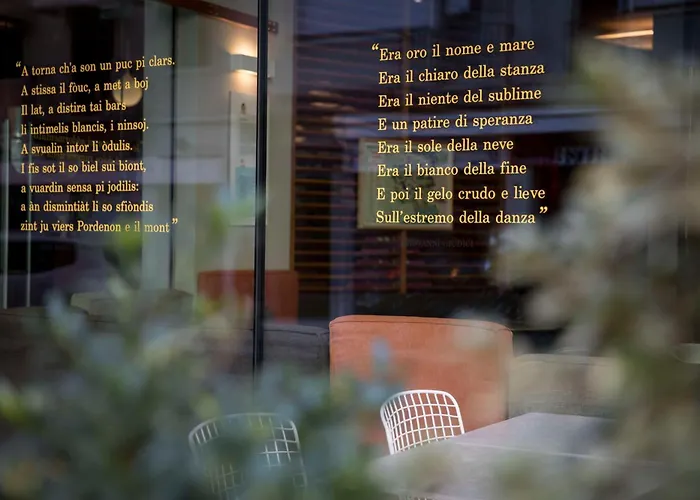 “A torna ch'a son un puc pi clars.
A stissa il fòuc, a met a boj
Il lat, a distira tai bars
li intimelis blancis, i ninsoj.
A svualin intor li òdulis.
I fis sot il so biel sui biont,
a vuardin sensa pi jodilis:
a àn dismintiàt li so sfiòndis
zint ju viers Pordenon e il mont”
“Era oro il nome e mare
Era il chiaro della stanza
Era il niente del sublime
E un patire di speranza
Era il sole della neve
Era il bianco della fine
E poi il gelo crudo e lieve
Sull'estremo della danza”